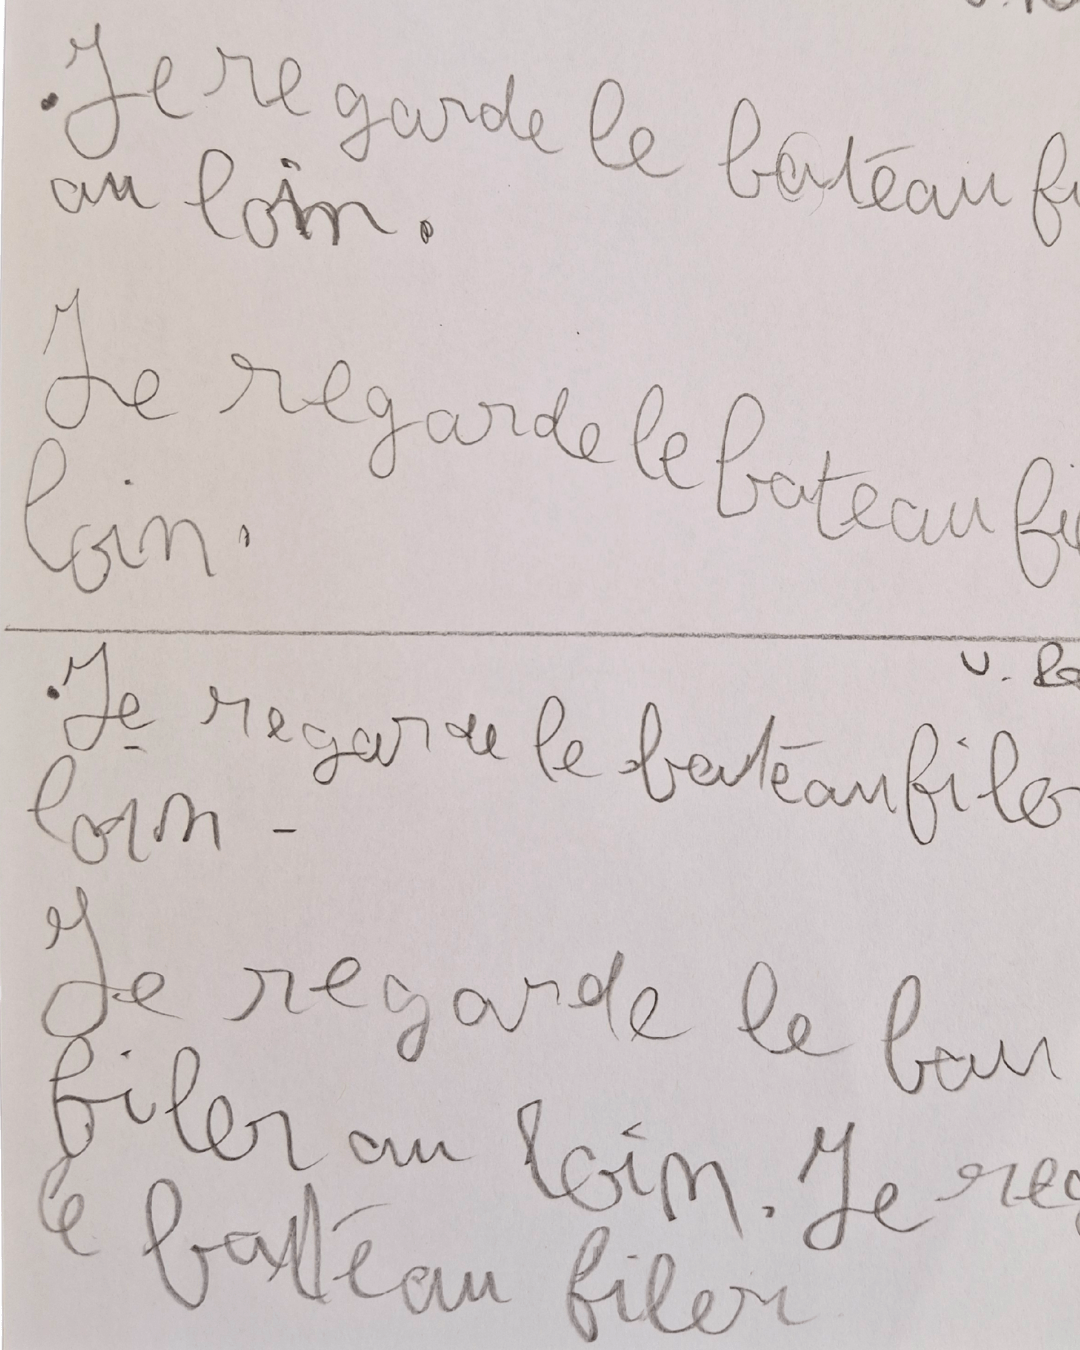 Je regarde le bateau fi
au loin.
Je regarde le bateau fi
loin.
Je regarde le bateau filer
loin -
Je regarde le bau
filer au loin. Je reg
le batteau filer